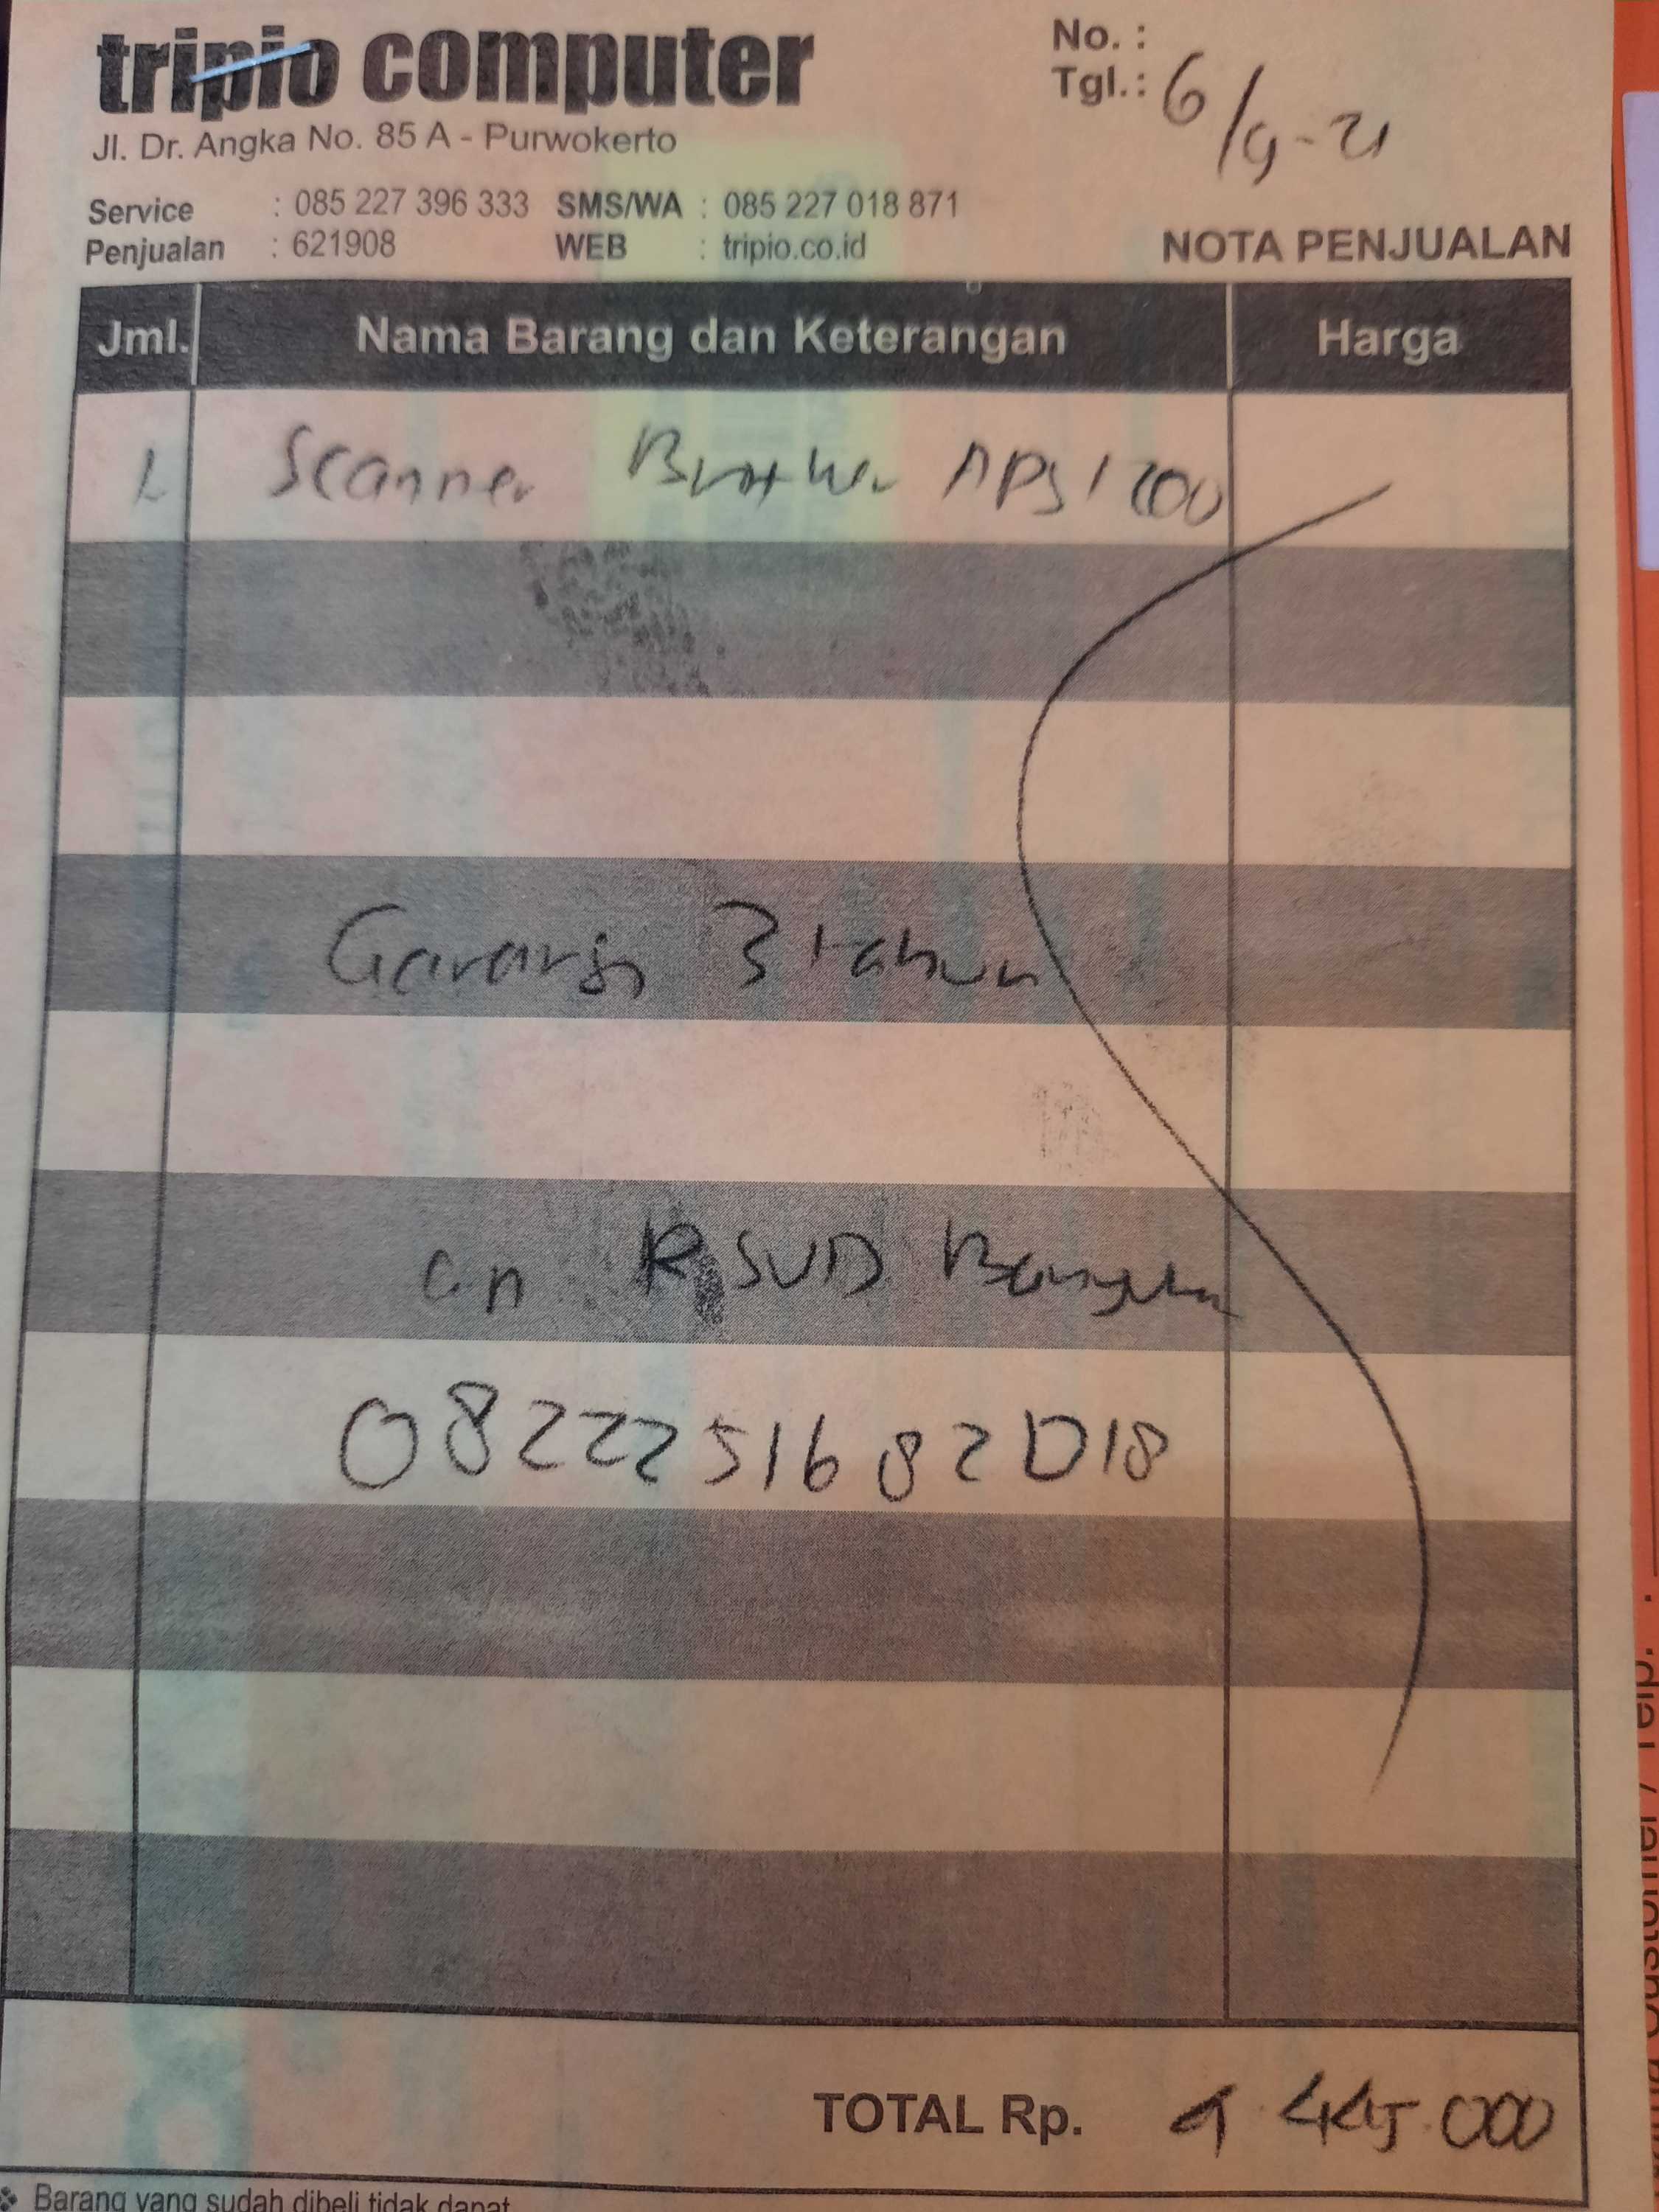 tripio computer
Jl. Dr. Angka No. 85 A - Purwokerto
No. :
Tgl. : 6/9-21
Service : 085 227 396 333 SMS/WA : 085 227 018 871
Penjualan : 621908 WEB : tripio.co.id
NOTA PENJUALAN
Jml. Nama Barang dan Keterangan Harga
1 Scanner Brother
Garansi 3 tahun
an RSUD
0822251682018
TOTAL Rp. 445.000
Barang yang sudah dibeli tidak dapat